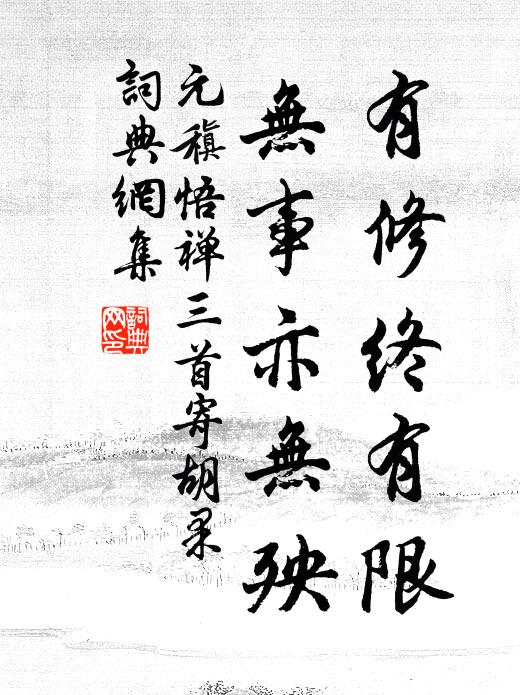 有修終有限
無事亦無殃
元稹悟禅三首寄胡杲
詞典網集
詞典网印